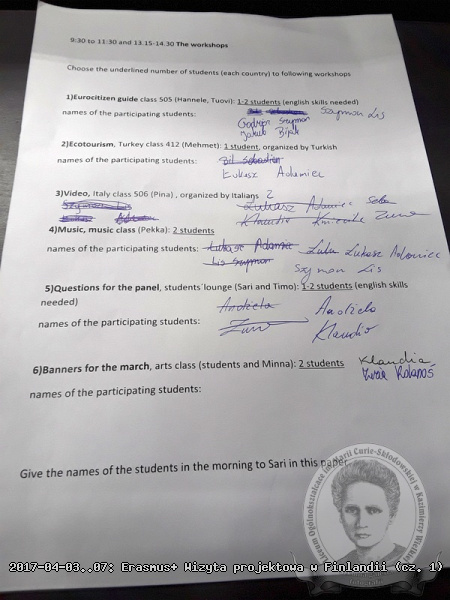 9:30 to 11:30 and 13.15-14.30 The workshops
Choose the underlined number of students (each country) to following workshops
1)Eurocitizen guide class 505 (Hannele, Tuovi): 1-2 students (english skills needed)
names of the participating students: Szymon Lis
Szymon
Jakub Bijak
2)Ecotourism, Turkey class 412 (Mehmet): 1 student, organized by Turkish
names of the participating students: Bil Sebastian
Łukasz Adamiec
3)Video, Italy class 506 (Pina) , organized by Italians 2
Łukasz Adamiec Seba
Klaudia Zuza
4)Music, music class (Pekka): 2 students
names of the participating students: Łukasz Adamiec Łukasz Adamiec
Lis Szymon Szymon Lis
5)Questions for the panel, students´lounge (Sari and Timo): 1-2 students (english skills
needed) Andżela Andżela
names of the participating students: Zuza Klaudia
6)Banners for the march, arts class (students and Minna): 2 students Klaudia
Zuzia Kołanoś
names of the participating students:
Give the names of the students in the morning to Sari in this paper.
Liceum Ogólnokształcące im. Marii Curie-Skłodowskiej w Kazimierzy Wielkiej
2017-04-03..07: Erasmus+ Wizyta projektowa w Finlandii (cz. 1)